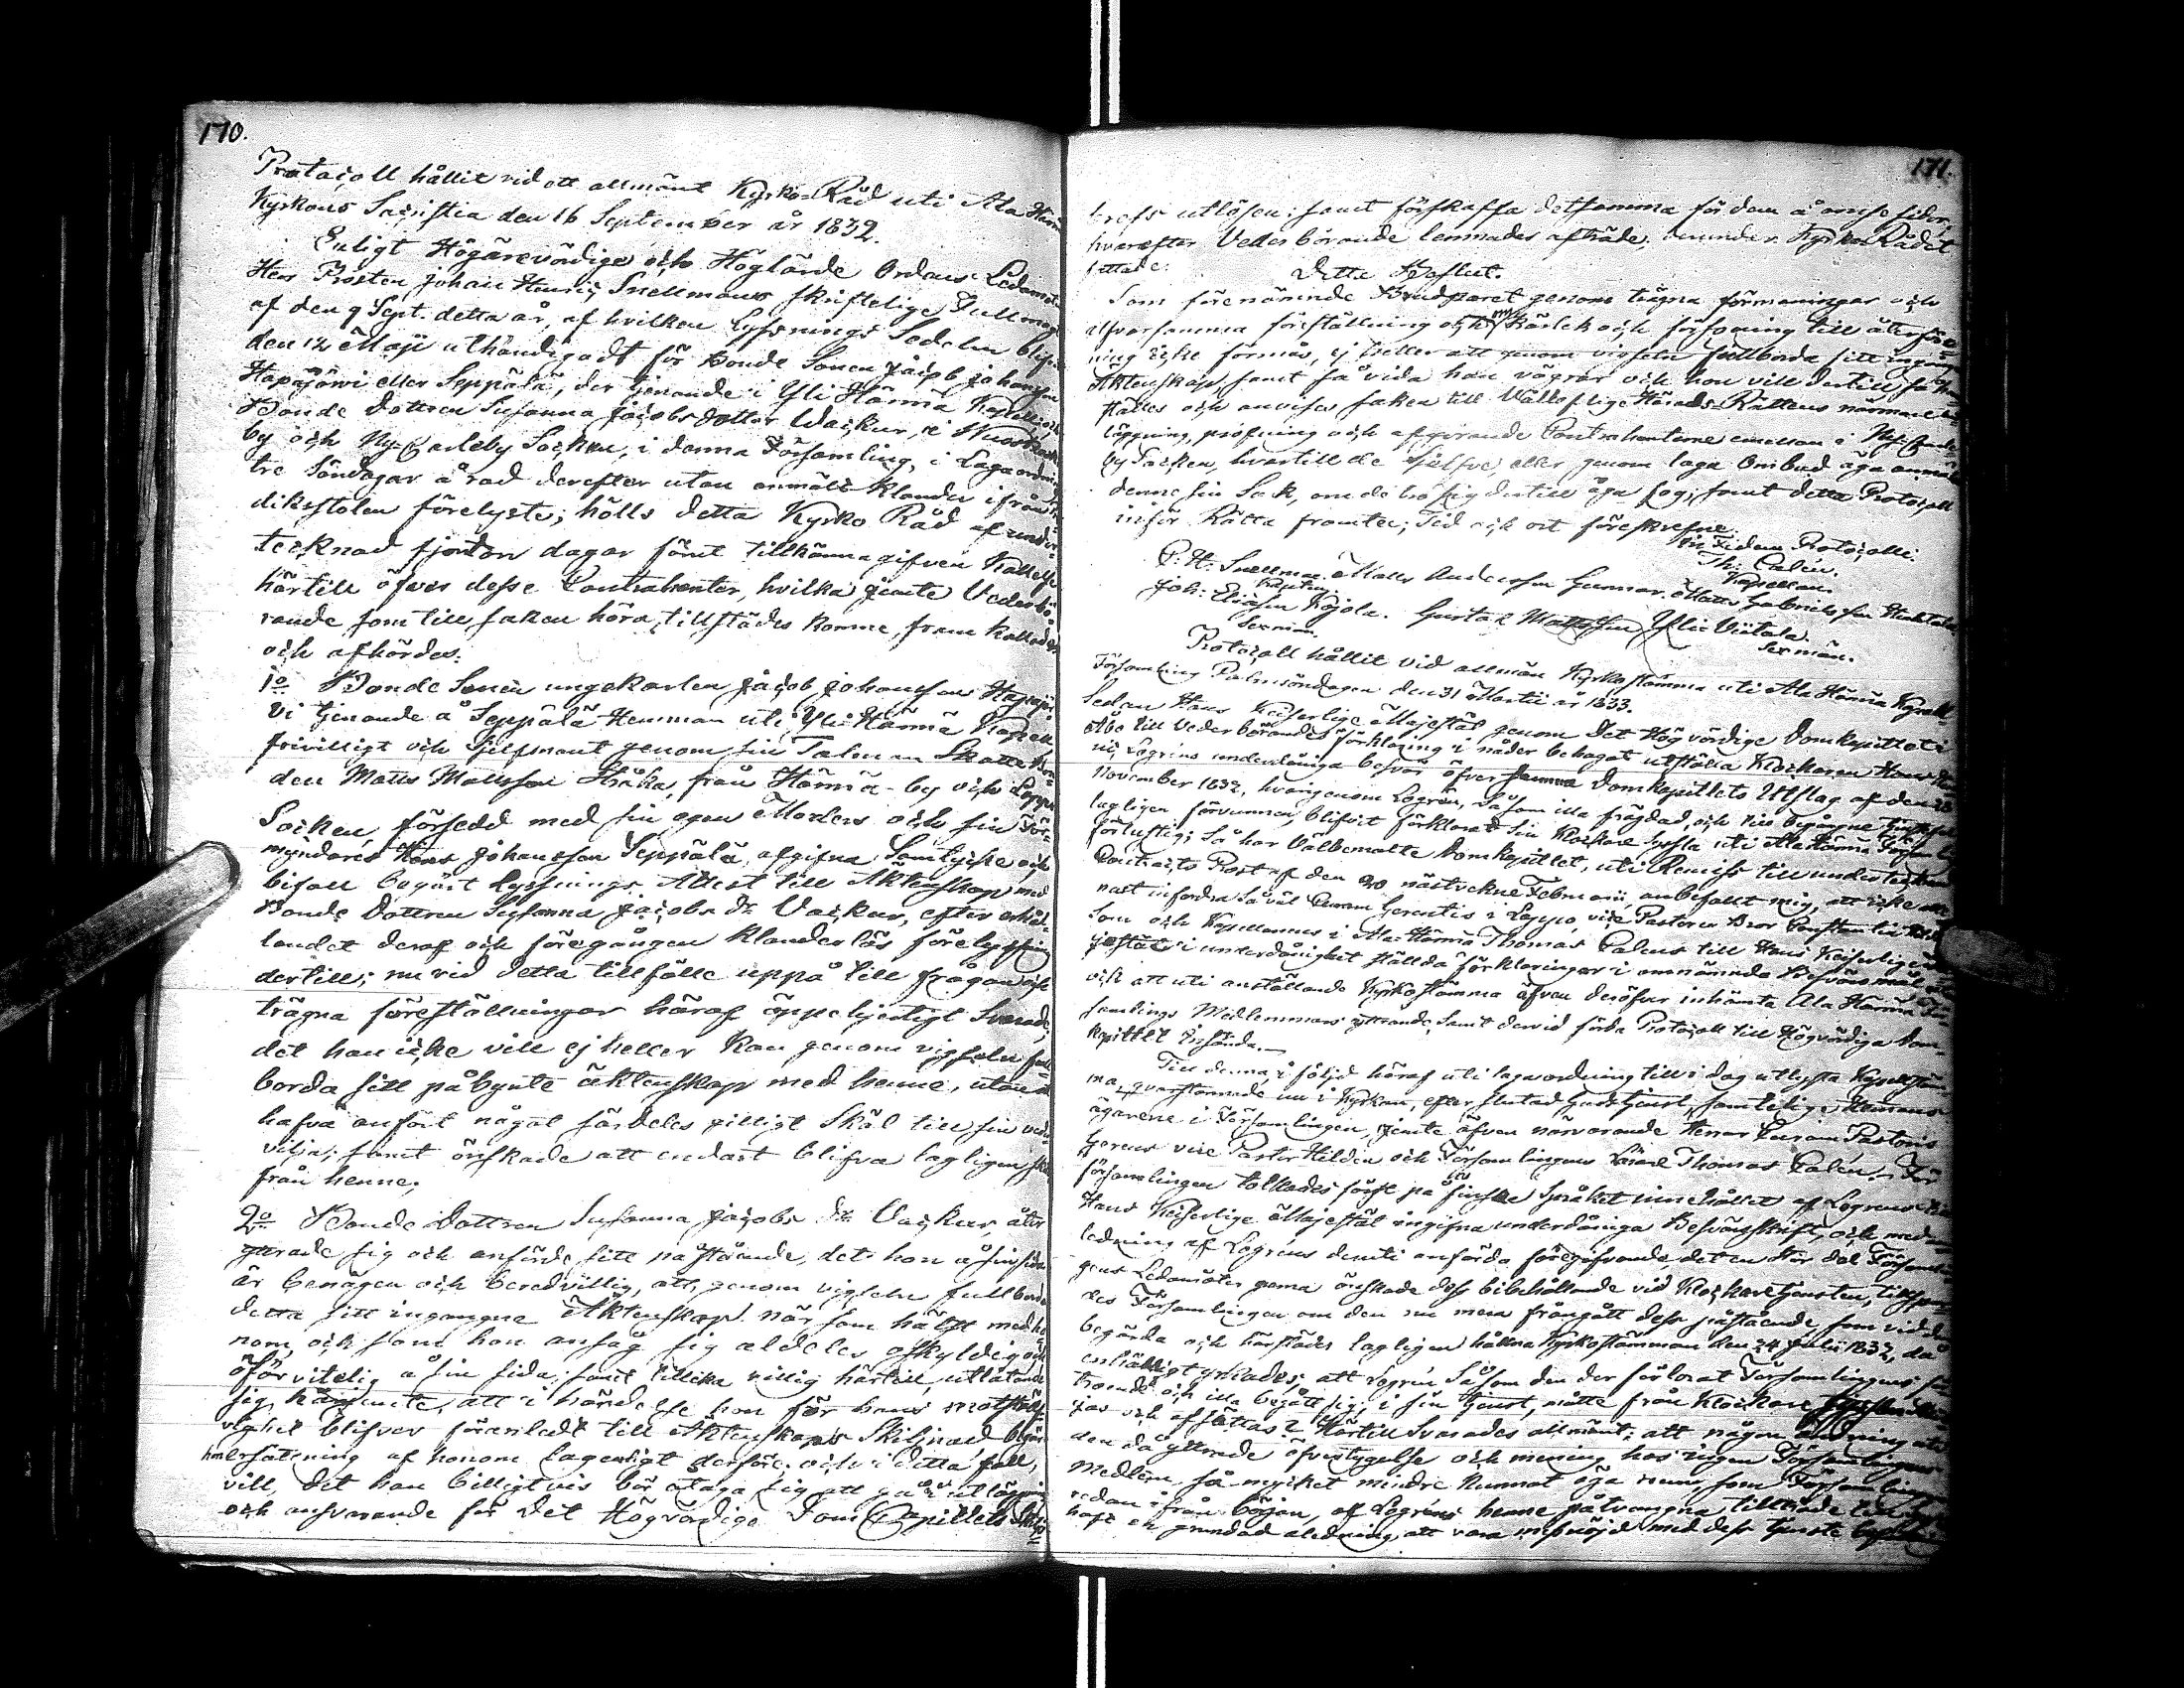 170.
Protocoll hållit vid ett allmänt Kyrko-Råd uti Ala Härmä
Kyrkans Sacristia den 16 September år 1832.
Enligt Högärevördige och Höglärde Ordens Ledamoten
Herr Prosten Johan Henric Snellmans skriftelige Fullmagt
af den 9 Sept. detta år, af hvilken Lysnings Sedelen blifvit
den 12 Maji uthändigadt för Bonde Sonen Jacob Johansson
Hapajärvi eller Seppälä, der tjenande i Yli Härmä Kapell, och
Bonde Dottren Susanna Jacobs dotter Wackur, i Wuoskoski
by och Ny-Carleby Socken, i denna Församling, i Laga ordning
tre Söndagar å rad derefter utan anmält Klander ifrån Pre-
dikstolen förelyste; hölls detta Kyrko Råd af under-
tecknad fjorton dagar förut tillkänna gifven Kallelse
härtill öfver desse Contrahenter, hvilka jemte Vederbö-
rande som till saken höra, tillstädes komne, fram kallades
och afhördes:
1o Bonde Sonen ungekarlen Jacob Johansson Hapajär-
vi tjenande å Seppälä Hemman uti Yli Härmä Kapell,
frivilligt och sjelfmant genom sin Talman Skatte Bon-
den Matts Mattsson Håka, från Härmä-by och Lappo
Socken, försedd med sin egen Moders och sin För-
myndares Hans Johansson Seppälä, afgifna Samtycke och
bifall begärt Lysnings Attest till Äktenskap med
Bonde Dottren Susanna Jacobs Dr Vackur, efter erhål-
landet deraf och föregången Klanderlös förelysning
dertill; nu vid detta tillfälle uppå till frågan och
trägna föreställningar häraf öppehjertigt Svarade,
det han icke vill ej heller Kan genom vigseln full-
borda sitt påbynte äktenskap med henne, utan at
hafva anfört något särdeles gilltigt Skäl till sin veder-
vilja; samt önskade att endast blifva lagligen skild
från henne;
2o Bonde Dottren Susanna Jacobs Dr Vackur, åter
gerade sig och anförde sitt påstående, det hon å sin sida
är benägen och beredvillig, att genom vigseln fullborda
detta sitt ingångne Äktenskap när som hälst med ho-
nom, och som hon ansåg sig aldeles oskyldig och
oförvitelig å sin sida; samt tillika villig härtill, utlåtande
sig härjemte, att i händelse hon för hans motsträf-
vighet blifver föranledt till Äktenskaps Skillnad begär
hon ersättning af honom lagenligt derföre, och i detta fall,
vill, det han billigtvis bör åtaga sig att gå i utläggning
och ansvarande för det Högvördige Dom Capitlets Skilje-
171.
brefs utlösen; samt förskaffa detsamma för dem å ömse sider,
hvarefter Vederbörande lemnades afträde, hvarunder Kyrko Rådet
fattade:
Detta Beslut.
Som förenämnde Brudparet genom trägna förmaningar och
alfvarsamma föreställning och Kärlek och försoning till återföre-
ning icke förmås, ej heller att genom vigseln fullborda sitt ingångna
Äktenskap, samt så vida han vägrar och hon vill dertill, så
ställes och anvises saken till Vällofliga Härads-Rättens närmare
läggning, pröfning och afgörande Contrahenterne emellan i Ny-Carle-
by Socken, hvartill de sjelfve eller genom laga Ombud äga anmäla
denne sin Sak, om de tro sig dertill äga fog; samt detta Protocoll
inför Rätta framtee; Tid och ort föreskrefne.
In Fidem Protocolli.
Th: Calén.
Kapellan.
P. H. Snellman. Matts Andersson Gunnar. Matts Gabrielsson Huhtala
Joh: Eliasson Kojola. Gustaf Mattsson Yli Viitala.
Sexman. Sexmän.
Protocoll hållit vid allmän Kyrko stämma uti Ala Härmä Kapell
Församling Palmsöndagen den 31 Martii år 1833.
Sedan Hans Kejserlige Majestät genom Det Hög vördige Domkapitlet i
Åbo till Vederbörandes förklaring i nåder behagat utställa Klockaren Hans
Logrens underdåniga besvär öfver Domkapitlets Utslag af den 28
November 1832, hvarigenom Logrén, Såsom illa frägdad, och
lagligen förvunnen, blifvit förklarad sin Klockare Syssla uti Ala Härmä Församling
förlustig; Så har Välbemälte Domkapitlet, uti Remiss till undertecknad
Contracts Prost af den 20 nästvekne Februarii, anbefallt mig, att icke
nast infordra Så väl Curam Gerentis i Lappo, vice Pastoren
som och Kapellanens i Ala-Härmä Thomas Calens till Hans Kejserlige Ma-
jestät i underdånighet ställda förklaringar i omnämnda Besvärsmål
och att uti anställande Kyrkostämma äfven deröfver inhämta Ala Härmä För-
samlings Medlemmars yttrande, samt dervid förda Protocoll till Högvördiga Dom-
kapitlet insända.
Till denna, i följd häraf uti laga ordning till i dag utlysta Kapellstäm-
ma, qvarstannade nu i Kyrkan, efter slutad Gudstjenst, samtelige Hemmans
ägarene i Församlingen, jemte äfven närvarande Herrar Curam Pastoris
Gerens vice Pastor Hildén och Församlingens Lärare Thomas Calén. För
församlingen tolkades först på finska Språket innehållet af Logrens till
Hans Kejserlige Majestät ingifna underdåniga Besvärsskrift, och med an-
ledning af Logrens deruti anförda föregifvande, det en Stor del Församlin-
gens Ledamöter gerna önskade dess bibehållande vid Klockaretjensten,
des Församlingen om den nu mera frångått dess påstående som vid den
begärda och härstädes lagligen hållna Kyrkostämman den 24 Julii 1832, då
enhälligt yrkades; att Logrén Såsom den der förlorat Församlingens för-
troende, och illa begått sig i sin tjenst, måtte från Klockare
gas och afsättas? Härtill Svarades allmänt; att någon ändring uti
den då yttrade öfvertygelse och mening hos ingen Församlingens
Medlem, så mycket mindre Kunnat äga rum, som Församlingen
redan ifrån början, af Logréns henne påtvungna tillträde
haft en grundad aledning, att vara missnöjd med dess tjenste